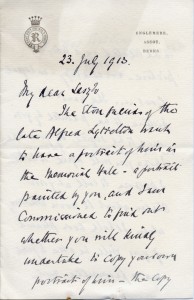 R
ENGLEMERE,
ASCOT,
BERKS.
23. July 1913.
My dear Laszlo
The Eton friends of the
late Alfred Lyttelton want
to have a portrait of him in
the Memorial Hall - a portrait
painted by you, and I am
Commissioned to find out
whether you will kindly
undertake to copy your own
portrait of him - the copy